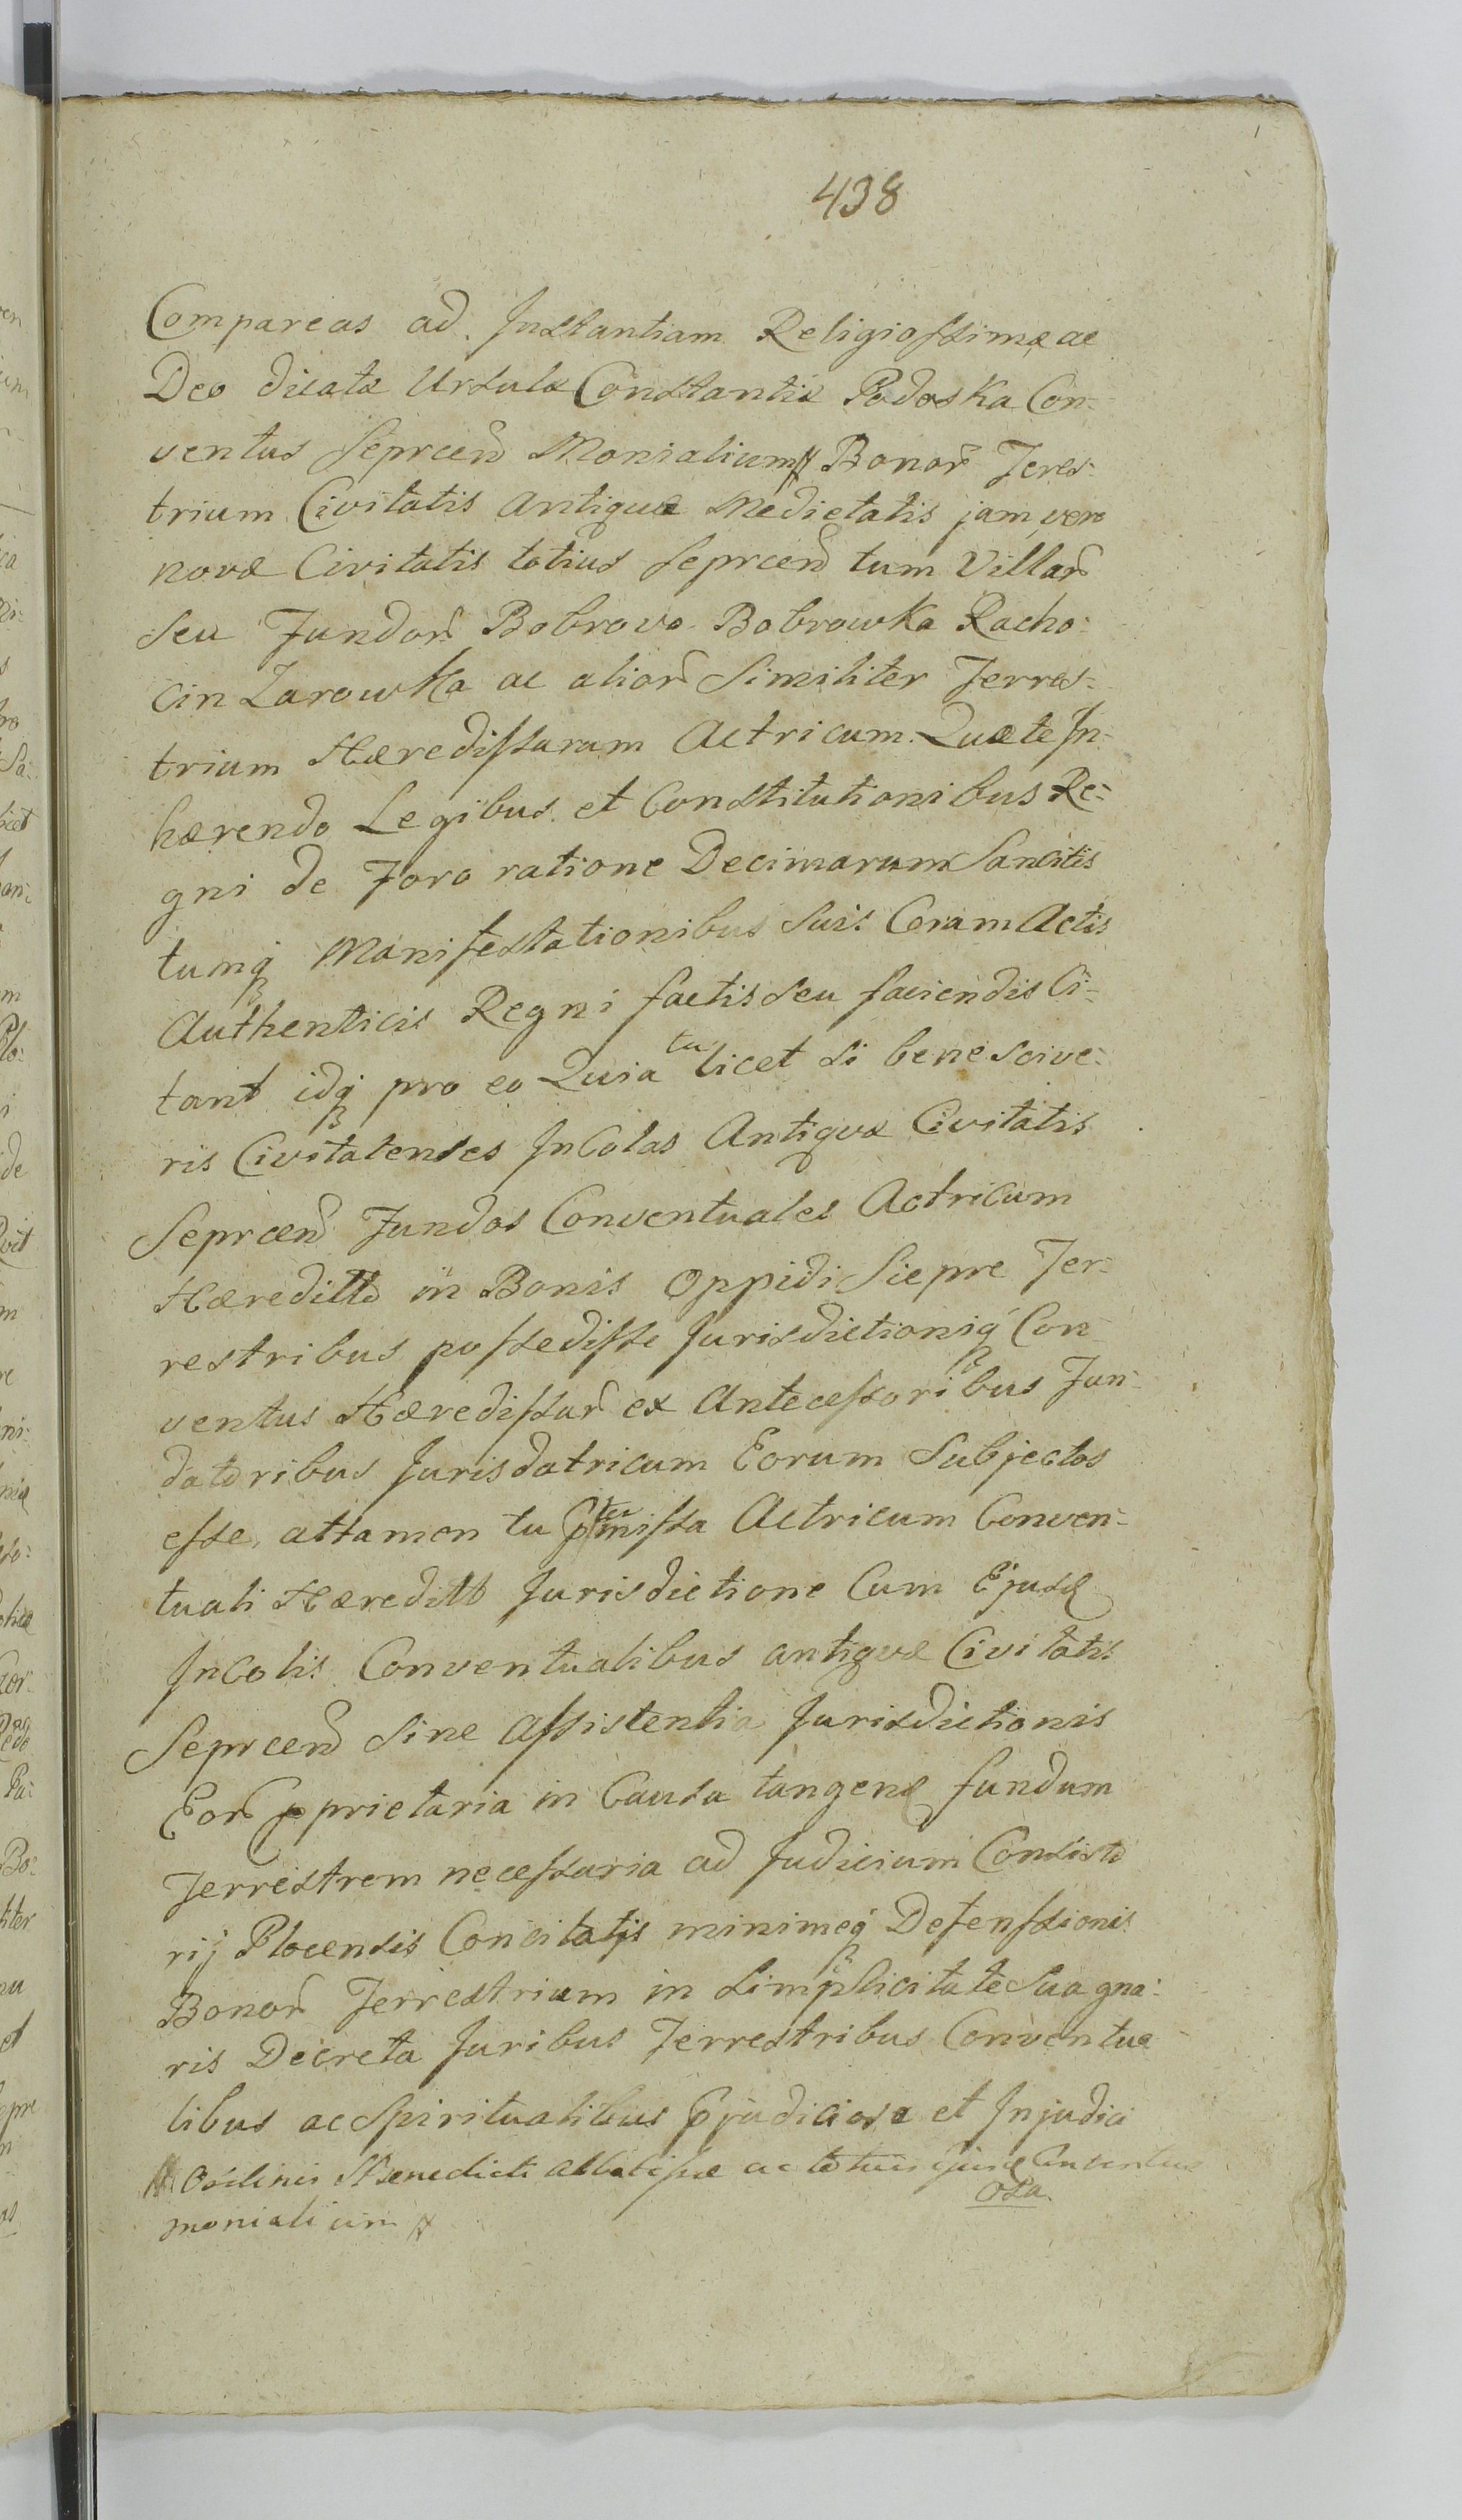 438
Compareas ad Instantiam Religiossimæ ac
Deo dicatæ Ursulæ Constantiæ Podoska Con-
ventus Seprcen Monialium # Bonor Teres-
trium Civitatis Antiquæ Medietatis jam vero
novæ Civitatis totius Seprcen tum Villar
seu Fundor Bobrowo Bobrowka Racho-
cin Zarowka ac alior Similiter Terres-
trium Hæredissarum Actricum. Quæ te In-
hærendo Legibus et Constitutionibus Re-
gni de Foro ratione Decimarum Sancitis
tumq Manifestationibus Suis Coram Actis
Authenticis Regni factis seu faciendis Ci-
tant idq pro eo Quia tu licet si bene scive-
ris Civitatenses Incolas Antiquæ Civitatis
Seprcen Fundos Conventuales Actricum
Hæreditto in Bonis Oppidi Siepre Ter-
restribus possedisse Jurisdictioniq Con-
ventus Hæredissar ex Antecessoribus Fun-
datoribus Jurisdatricum Eorum Subjectos
esse, attamen tu pmissa Actricum Conven-
tuali Hæreditt Jurisdictione Cum Ejusd
Incolis Conventualibus antiquæ Civitatis
Seprcen Sine Assistentia Jurisdictionis
Eor pprietaria in Causa tangen fundum
Terrestrem necessaria ad Judicium Consisto
rij Plocensis Concitatis minimeq Defenssionis
Bonor Terrestrium in Simplicitate Sua gna-
ris Decreta Juribus Terrestribus Conventua
libus ac Spiritualibus pjudiciosa et Injudici
# Ordinis S Benedicti Abbatissæ ac totius ejusd Conventus
osa
monialium #